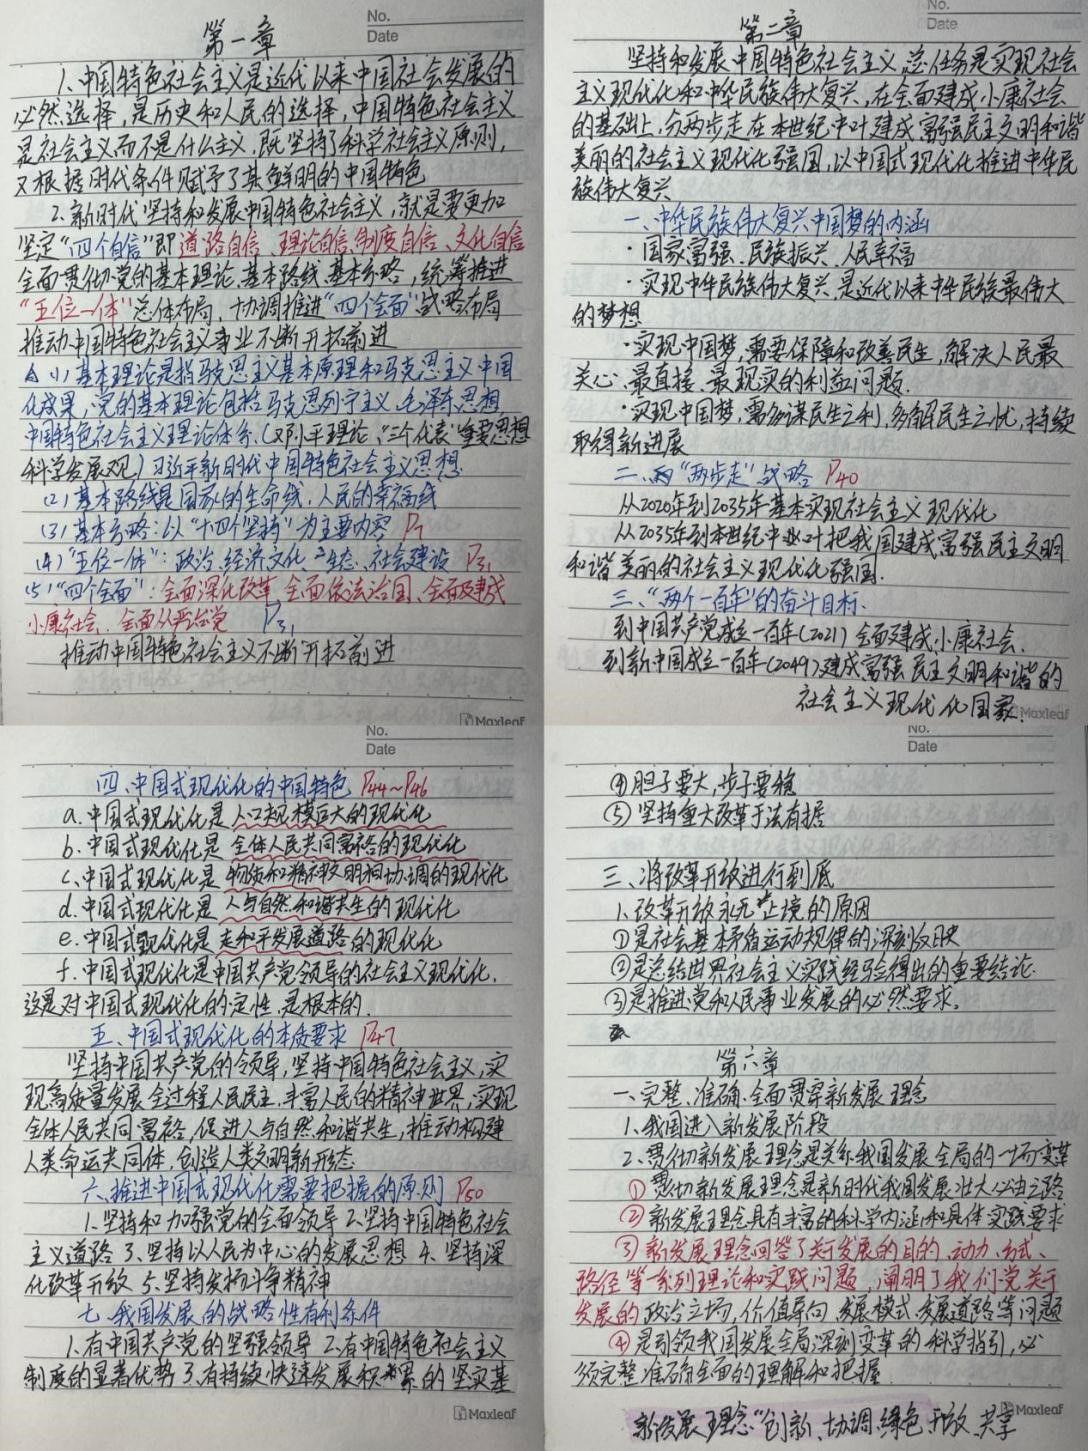 No.
Date
第一章
1、中国特色社会主义是近代以来中国社会发展的
必然选择，是历史和人民的选择，中国特色社会主义
是社会主义而不是什么主义，既坚持了科学社会主义原则，
又根据时代条件赋予了其鲜明的中国特色
2、新时代坚持和发展中国特色社会主义，就是要更加
坚定“四个自信”即道路自信、理论自信、制度自信、文化自信
全面贯彻党的基本理论、基本路线、基本方略，统筹推进
“五位一体”总体布局，协调推进“四个全面”战略布局
推动中国特色社会主义事业不断开拓前进
(1) 基本理论是指马克思主义基本原理和马克思主义中国
化成果，党的基本理论包括马克思列宁主义、毛泽东思想
中国特色社会主义理论体系、(邓小平理论、“三个代表”重要思想
科学发展观) 习近平新时代中国特色社会主义思想
(2) 基本路线是国家的生命线，人民的幸福线
(3) 基本方略：以“十四个坚持”为主要内容
(4)“五位一体”：政治、经济文化、生态、社会建设 P31
(5)“四个全面”：全面深化改革、全面依法治国、全面建成
小康社会、全面从严治党 P31
推动中国特色社会主义不断开拓前进
Maxleaf
No.
Date
第二章
坚持和发展中国特色社会主义，总任务是实现社会
主义现代化和中华民族伟大复兴，在全面建成小康社会
的基础上，分两步走在本世纪中叶建成富强民主文明和谐
美丽的社会主义现代化强国，以中国式现代化推进中华民
族伟大复兴
一、中华民族伟大复兴中国梦的内涵
·国家富强、民族振兴、人民幸福
·实现中华民族伟大复兴，是近代以来中华民族最伟大
的梦想
·实现中国梦，需要保障和改善民生，解决人民最
关心、最直接、最现实的利益问题.
·实现中国梦，需多谋民生之利，多解民生之忧，持续
取得新进展
二、“两步走”战略 P40
从2020年到2035年基本实现社会主义现代化
从2035年到本世纪中叶把我国建成富强民主文明
和谐美丽的社会主义现代化强国.
三、“两个一百年”的奋斗目标.
到中国共产党成立一百年(2021) 全面建成小康社会.
到新中国成立一百年(2049)建成富强民主文明和谐的
社会主义现代化国家.
Maxleaf
No.
Date
四、中国式现代化的中国特色 P44~P46
a. 中国式现代化是人口规模巨大的现代化
b. 中国式现代化是全体人民共同富裕的现代化
c. 中国式现代化是物质和精神文明相协调的现代化
d. 中国式现代化是人与自然和谐共生的现代化
e. 中国式现代化是走和平发展道路的现代化
f. 中国式现代化是中国共产党领导的社会主义现代化，
这是对中国式现代化的定性，是根本的.
五、中国式现代化的本质要求 P47
坚持中国共产党的领导，坚持中国特色社会主义，实
现高质量发展 全过程人民民主，丰富人民的精神世界，实现
全体人民共同富裕，促进人与自然和谐共生，推动构建
人类命运共同体，创造人类文明新形态
六、推进中国式现代化需要把握的原则 P50
1.坚持和加强党的全面领导 2.坚持中国特色社会
主义道路 3、坚持以人民为中心的发展思想 4. 坚持深
化改革开放 5、坚持发扬斗争精神
七、我国发展的战略性有利条件
1、有中国共产党的坚强领导 2、有中国特色社会主义
制度的显著优势 3、有持续快速发展积累的坚实基
Maxleaf
No.
Date
④胆子要大，步子要稳
⑤坚持重大改革于法有据
三、将改革开放进行到底
1、改革开放永无止境的原因
①是社会基本矛盾运动规律的深刻反映
②是总结世界社会主义实践经验得出的重要结论.
③是推进党和人民事业发展的必然要求。
第六章
一、完整、准确、全面贯穿新发展理念
1、我国进入新发展阶段
2、贯彻新发展理念是关系我国发展全局的一场变革
①贯彻新发展理念是新时代我国发展壮大必由之路
②新发展理念具有丰富的科学内涵和具体实践要求
③新发展理念回答了关于发展的目的、动力、方式、
路径等一系列理论和实践问题，阐明了我们党关于
发展的政治立场，价值导向，发展模式、发展道路等问题
④是引领我国发展全局深刻变革的科学指引，必
须完整准确全面的理解和把握.
新发展理念“创新、协调、绿色、开放、共享
Maxleaf